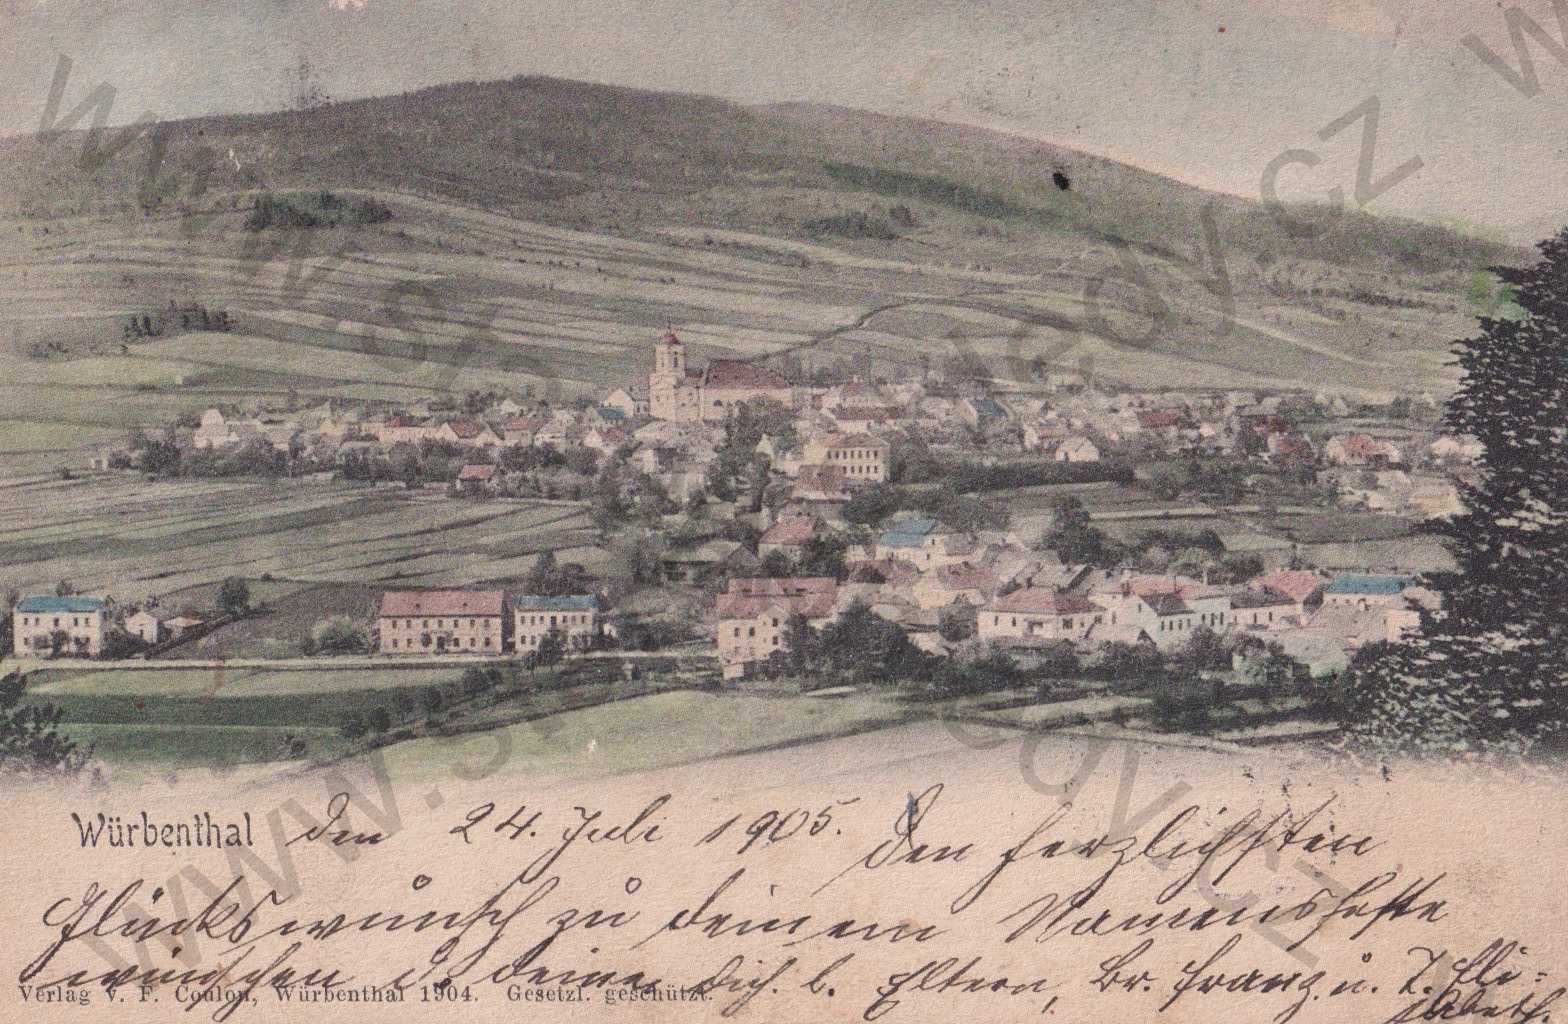 Würbenthal den 24. Juli 1905. Den herzlichsten
Glückswunsch zu deinem Namensfeste
wünschen deine Dich. l. Eltern, Br. Franz. u. Eli-
sabeth.
Verlag v. F. Coulon, Würbenthal 1904. Gesetzl. geschützt.